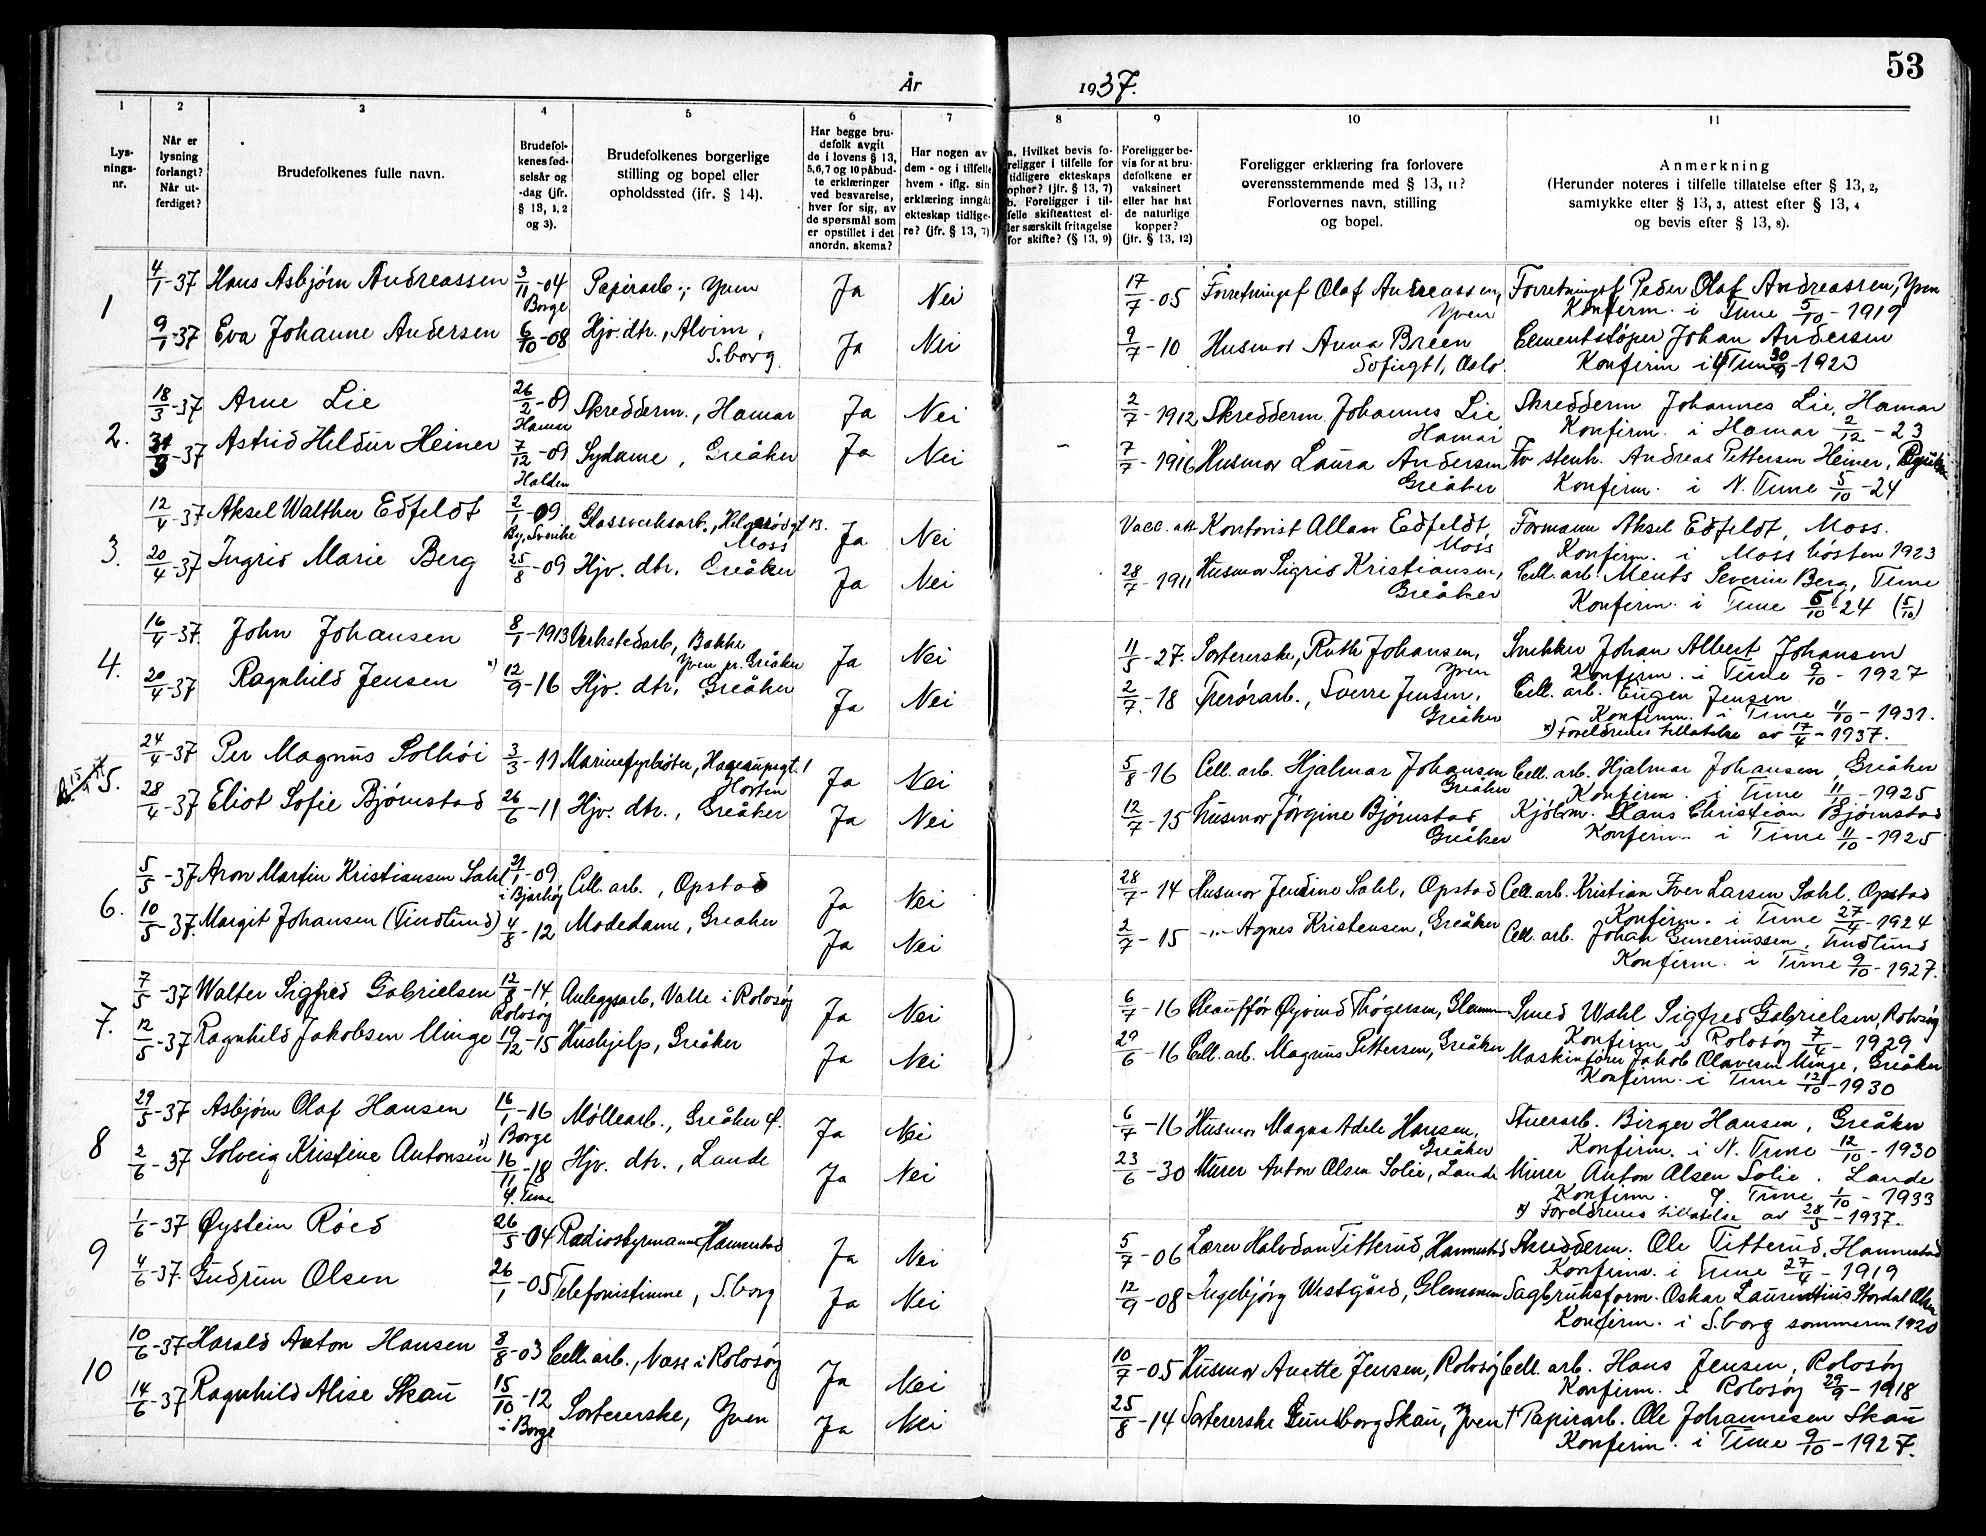 53
År 1937.
1
2
3
4
5
6
7
8
9
10
11
Lys-
nings-
nr.
Når er
lysning
forlangt?
Når ut-
ferdiget?
Brudefolkenes fulle navn.
Brudefol-
kenes fød-
selsår og
-dag (jfr.
§ 13, 1, 2
og 3).
Brudefolkenes borgerlige
stilling og bopel eller
opholdssted (ifr. § 14).
Har begge bru-
defolk avgit
de i lovens § 13,
5,6,7 og 10 påbud-
te erklæringer
ved besvarelse,
hver for sig, av
de spørsmål som
er opstillet i det
anordn. skema?
Har nogen av
dem - og i tilfelle
hvem - iflg. sin
erklæring inngåt
ekteskap tidlige-
re? (jfr. § 13, 7)
a. Hvilket bevis fo-
religger i tilfelle for
tidligere ekteskaps
ophør? (jfr. § 13, 7)
b. Foreligger i til-
felle skifteattest el-
ler særskilt fritagelse
for skifte? (§ 13, 9)
Foreligger be-
vis for at bru-
defolkene er
vaksinert
eller har hat
de naturlige
kopper?
(jfr. § 13, 12)
Foreligger erklæring fra forlovere
overensstemmende med § 13, 11?
Forlovernes navn, stilling
og bopel.
Anmerkning
(Herunder noteres i tilfelle tillatelse efter § 13, 2,
samtykke efter § 13, 3, attest efter § 13, 4
og bevis efter § 13, 8).
1
4/1-37 Hans Asbjørn Andreassen 3/11-04 Borge Papirarb., Yven Ja Nei 17/7-05 Forretningsf Olaf Andreassen, Yven Forretningsf Peder Olaf Andreassen, Yven
Konfirm. i Tune 5/10-1919
9/1-37 Eva Johanne Andersen 6/10-08 Hjv. dtr., Alvim, S.borg Ja Nei 9/7-10 Husmor Anna Breen Sofiegt 1, Oslo. Cementstøper Johan Andersen
Konfirm i Tune 30/9-1923
2.
18/3-37 Arne Lie 26/2-09 Hamar Skredderm., Hamar Ja Nei 2/7-1912 Skredderm Johannes Lie Hamar Skredderm Johannes Lie, Hamar
Konfirm. i Hamar 2/12-23
31/3-37 Astrid Hildur Heiner 7/12-09 Halden Sydame, Greåker Ja Nei - 7/7-1916 Husmor Laura Andersen Greåker stenh. Andreas Pettersen Heiner,
Konfirm. i N. Tune 5/10-24
3.
12/4-37 Aksel Walther Edfeldt 2/-09 Glassverksarb., Moss Ja Nei Vacc. att Kontorist Allan Edfeldt, Moss Formann Aksel Edfeldt, Moss.
Konfirm. i Moss høsten 1923
20/4-37 Ingrid Marie Berg 25/8-09 Hjv. dtr, Greåker Ja Nei 28/7-1911 Husmor Sigrid Kristiansen, Greåker Cell. arb. Ments Severin Berg, Tune
Konfirm. i Tune 5/10 24 (5/10)
4.
16/4-37. John Johansen 8/1-1913 Verkstedarb, Bakke Yven pr. Greåker Ja Nei 11/5-27. Sortererske, Ruth Johansen, Yven Snekker Johan Albert Johansen
Konfirm. i Tune 9/10-1927
20/4-37 Ragnhild Jensen x) 12/9-16 Hjv. dtr, Greåker Ja Nei 2/7-18 Rørarb., Sverre Jensen, Greåker Cell. arb. Eugen Jensen
Konfirm. i Tune 11/10-1931.
x) Foreldrenes tillatelse av 17/4-1937.
5.
24/4-37 Per Magnus Solhøi 3/3-11 Marinefyrbøter, Horten Ja Nei 5/8-16 Cell. arb. Hjalmar Johansen Greåker Cell. arb. Hjalmar Johansen, Greåker
Konfirm. i Tune 11/10-1925
28/4-37 Eliot Sofie Bjørnstad 26/6-11 Hjv. dtr., Greåker Ja Nei 12/7-15 Husmor Jørgine Bjørnstad Greåker Kjøbm. Hans Christian Bjørnstad
Konfirm. i Tune 11/10-1925
6.
5/5-37 Aron Martin Kristiansen Sahl 21/1-09 Cell. arb., Opstad Ja Nei 28/7-14 Husmor Jendine Sahl, Opstad Cell. arb. Kristian Iver Larsen Sahl, Opstad
Konfirm. i Tune 27/4-1924
10/5-37. Margit Johansen (Tindlund) 4/8-12 Modedame, Greåker Ja Nei 2/7-15 -"- Agnes Kristensen, Greåker Cell. arb. Johan Guneriussen, Tindlund
Konfirm. i Tune 9/10-1927.
7.
7/5-37 Walter Sigfred Gabrielsen 12/8-14, Rolvsøy Anleggsarb, Valle i Rolvsøy Ja Nei 6/7-16 Chauffør Øivind Thøgersen, Glemmen Smed Wahl Sigfred Gabrielsen, Rolvsøy
Konfirm. i Rolvsøy 7/4-1929
12/5-37 Ragnhild Jakobsen Minge 19/12-15 Hushjelp, Greåker Ja Nei 29/6-16 Cell. arb. Magnus Pettersen, Greåker Maskinfører Jakob Olavesen Minge, Greåker
Konfirm. i Tune 12/10-1930
8
29/5-37 Asbjørn Olaf Hansen 16/1-16 Borge Møllearb., Greåker f. Ja Nei 6/7-16 Husmor Magna Adele Hansen, Greåker Stuerarb. Birger Hansen, Greåker
Konfirm. i N. Tune 12/10-1930
2/6-37 Solveig Kristine Antonsen x) 16/11-18 Tune Hjv. dtr., Lande Ja Nei 23/6-30 Murer Anton Olsen Solie, Lande Murer Anton Olsen Solie. Lande
Konfirm. Tune 1/10-1933
x) Foreldrenes tillatelse av 28/5-1937.
9
1/6-37 Øystein Röed 26/5-04 Radiostyrmann, Hannestad Ja Nei 5/7-06 Lærer Halvdan Titterud, Hannestad Skredderm. Ole Titterud, Hannestad
Konfirm. i Tune 27/4-1919
4/6-37. Gudrun Olsen 26/1-05 Telefonistinne, S.borg Ja Nei 12/9-08 Ingebjørg Westgård, Glemmen Sagbruksform. Oskar Laurentius Stordal Olsen
Konfirm. i S.borg sommeren 1920
10
10/6-37 Harald Anton Hansen 8/8-03 Cell. arb., Næss i Rolvsøy Ja Nei 10/7-05 Husmor Anette Jensen, Rolvsøy Cell. arb. Hans Jensen, Rolvsøy
Konfirm. i Rolvsøy 29/9-1918
14/6-37 Ragnhild Alise Skau 15/10-12 i Borge Sortererske, Yven Ja Nei 25/8-14 Sortererske Gundborg Skau, Yven † Papirarb. Ole Johannesen Skau
Konfirm. i Tune 9/10-1927.